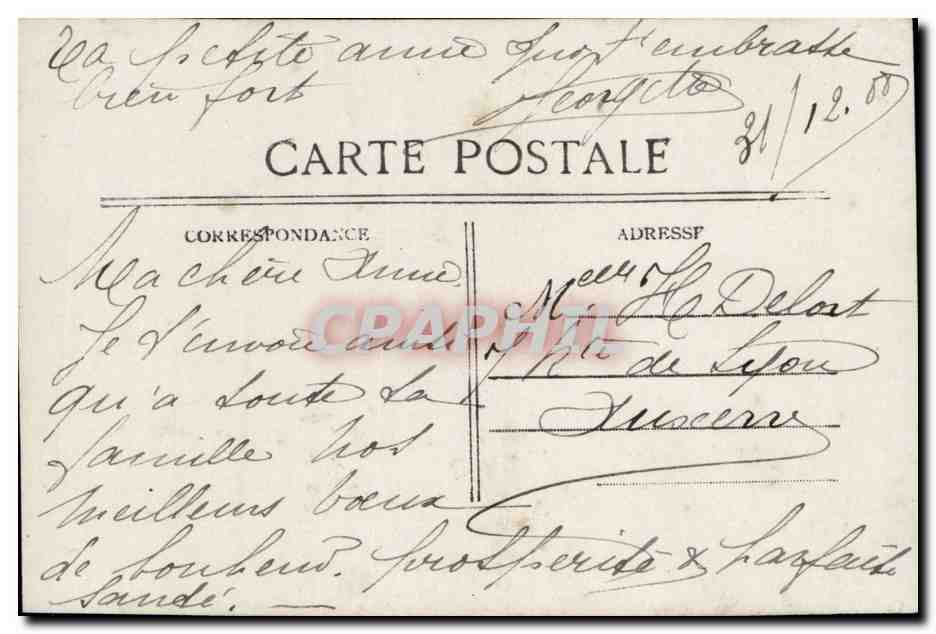 Ta petite amie qui t'embrasse
bien fort Georgette
31/12.08
CARTE POSTALE
CORRESPONDANCE
Ma chère Anna
Je t'envoie ainsi
qu'a toute ta
famille nos
meilleurs voeux
de bonheur. prosperité & parfaite
santé. —
ADRESSE
Melle H Delort
Rte de Lyon
Auxerre
CPAPHIL